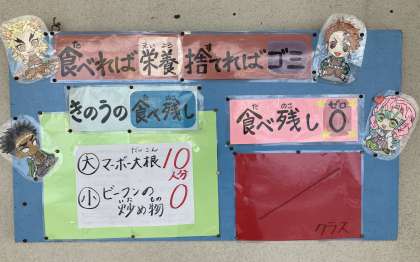 食べれば栄養捨てればゴミ
きのうの食べ残し
食べ残し0
大 マーボー大根 10人分
小 ビーフンの炒め物 0
クラス